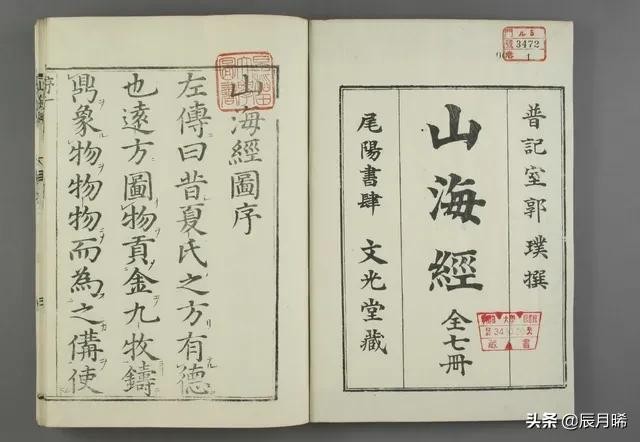 普記室郭璞撰
山海經
全七冊
尾陽書肆 文光堂藏
3472
1
山海經圖序
左傳曰昔夏氏之方有德
也遠方圖物貢金九牧鑄
鼎象物物物而為之備使
序一
头条 @辰月晞